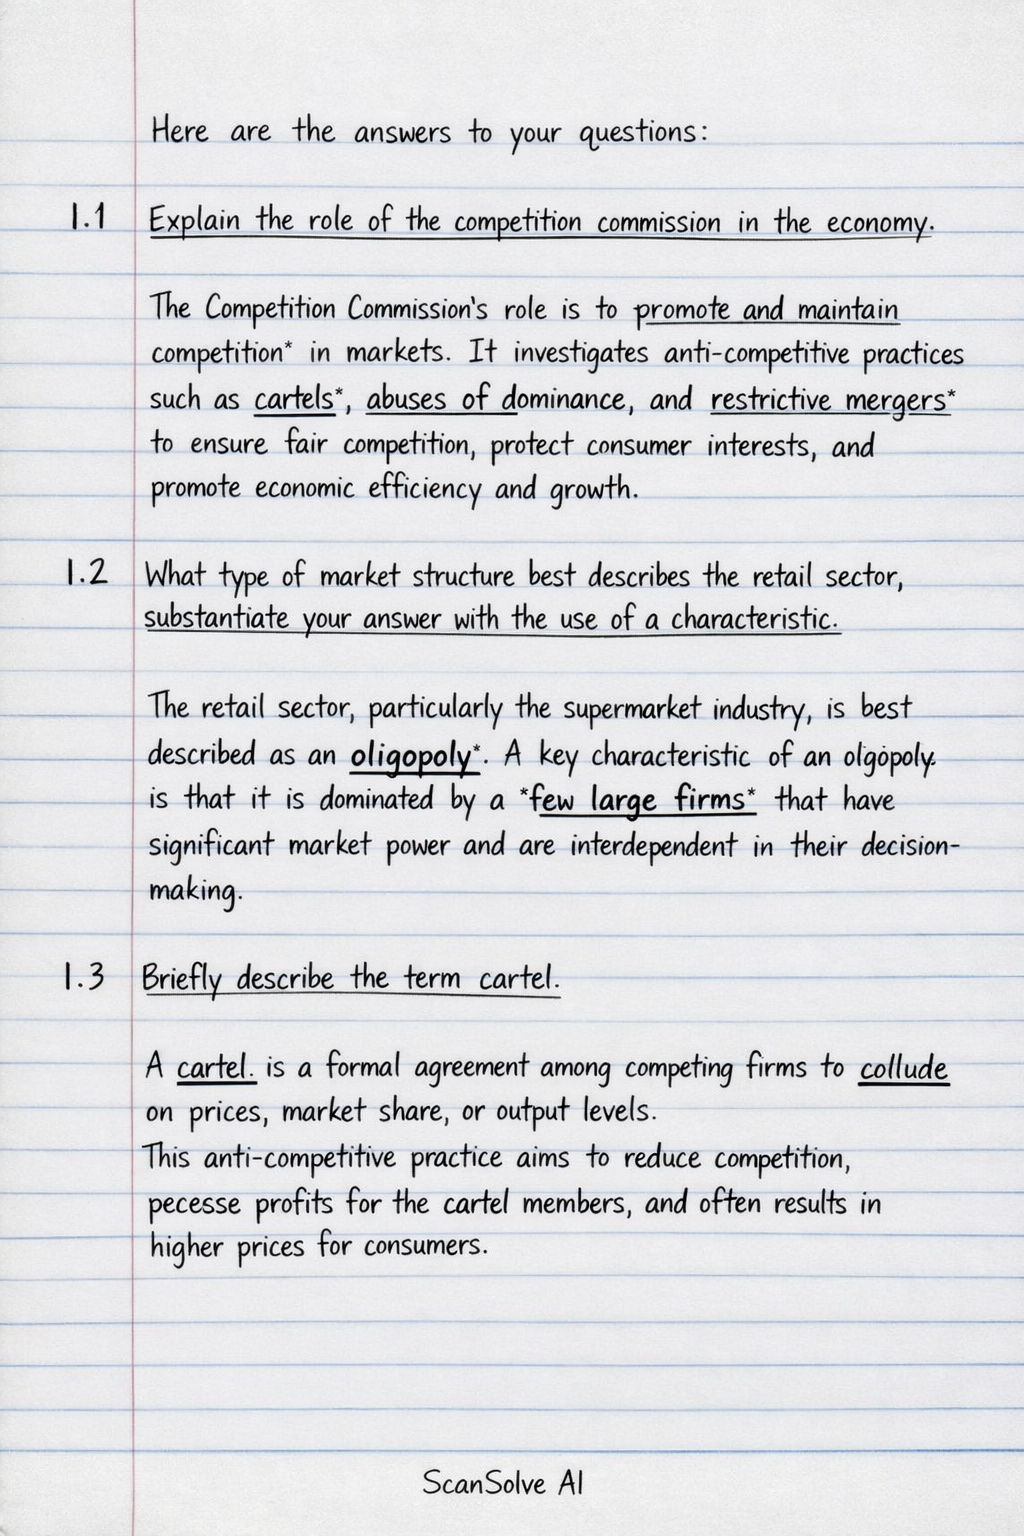 Here are the answers to your questions:
1.1 Explain the role of the competition commission in the economy.
The Competition Commission's role is to promote and maintain
competition* in markets. It investigates anti-competitive practices
such as cartels*, abuses of dominance, and restrictive mergers*
to ensure fair competition, protect consumer interests, and
promote economic efficiency and growth.
1.2 What type of market structure best describes the retail sector,
substantiate your answer with the use of a characteristic.
The retail sector, particularly the supermarket industry, is best
described as an oligopoly*. A key characteristic of an olgopoly.
is that it is dominated by a *few large firms* that have
significant market power and are interdependent in their decision-
making.
1.3 Briefly describe the term cartel.
A cartel. is a formal agreement among competing firms to collude
on prices, market share, or output levels.
This anti-competitive practice aims to reduce competition,
pecesse profits for the cartel members, and often results in
higher prices for consumers.
ScanSolve AI